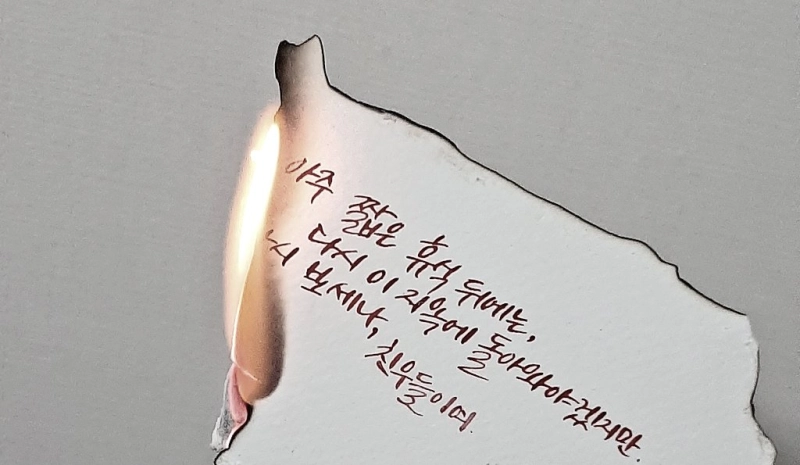 아주 짧은 휴식 뒤에는,
다시 이 지옥에 돌아와야겠지만.
보세나,
친우들이여.